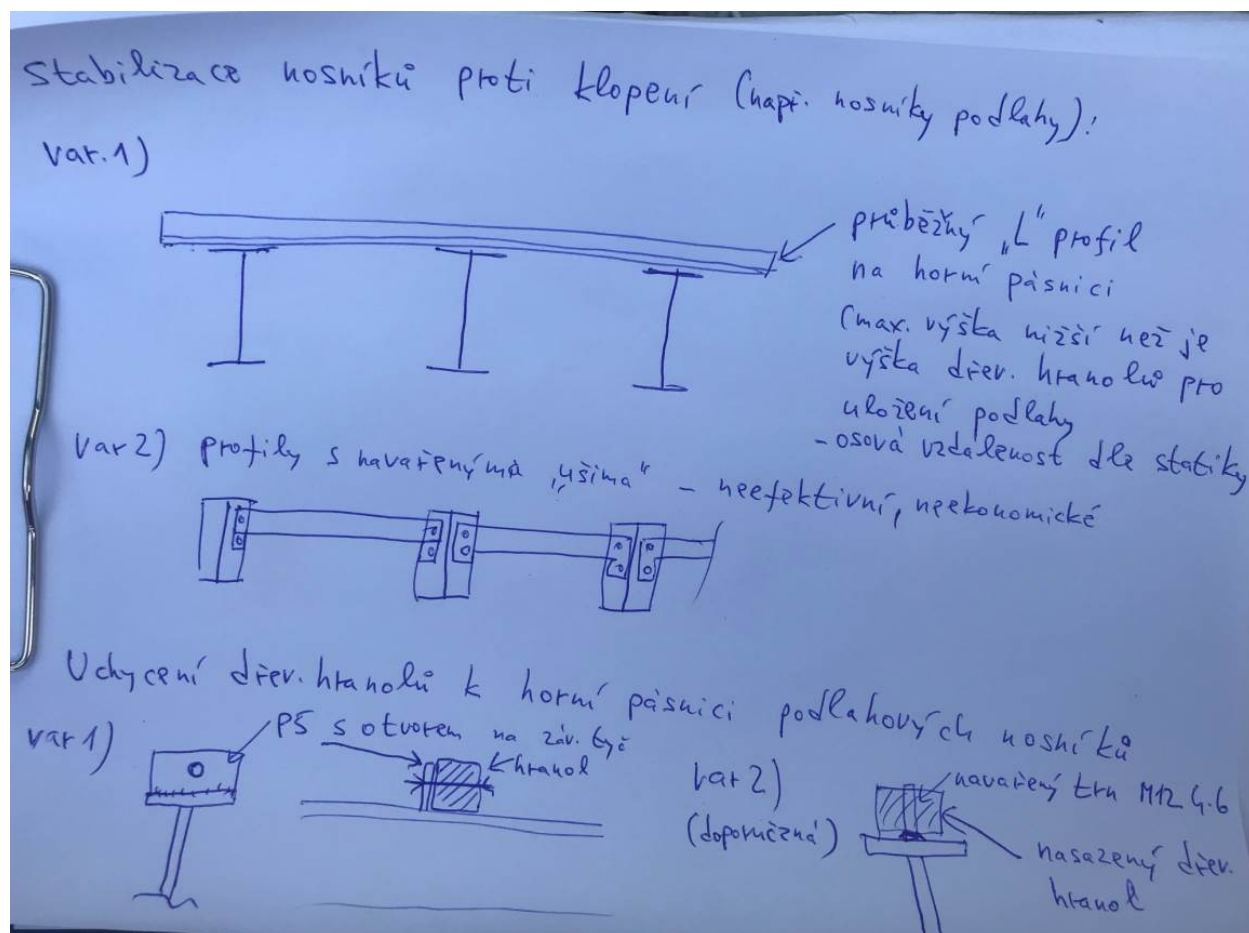 Stabilizace nosníků proti klopení (např. nosníky podlahy):
var. 1)
průběžný „L" profil
na horní pásnici
(max. výška nižší než je
výška dřev. hranolů pro
uložení podlahy
- osová vzdálenost dle statiky
var 2) profily s navařenýma „ušima" - neefektivní, neekonomické
Uchycení dřev. hranolů k horní pásnici podlahových nosníků
var 1)
P5 s otvorem na záv. tyč
hranol
var 2)
(doporučená)
navařený trn M12 4.6
nasazený dřev.
hranol